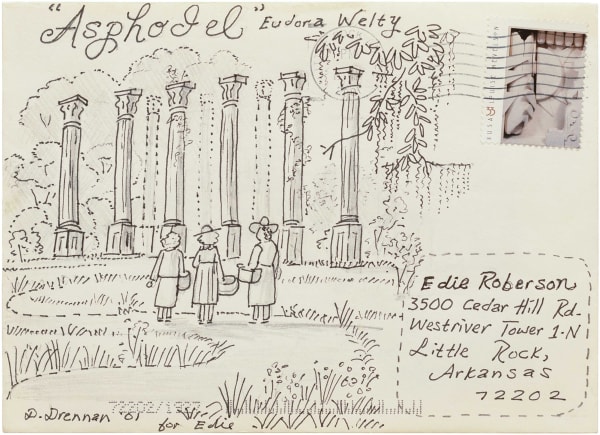 "Asphodel" Eudora Welty
USA
Edie Roberson
3500 Cedar Hill Rd.
Westriver Tower 1-N
Little Rock,
Arkansas
72202
72202/1997
D. Drennan '01
for Edie